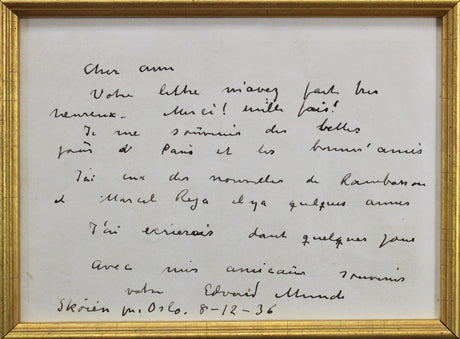 Cher ami
Votre lettre m'avez fait tres
heureux. Merci! mille fois!
Je me souvenis des belles
jours d' Paris et les bonnes amis
J'ai eux des nouvelles de Rambosson
et Marcel Reja il y a quelques annes
J'ai ecrierais dant quelques jours
Avec mis amicaux souvenirs
votre Edvard Munch
Skøien pr. Oslo. 8-12-36